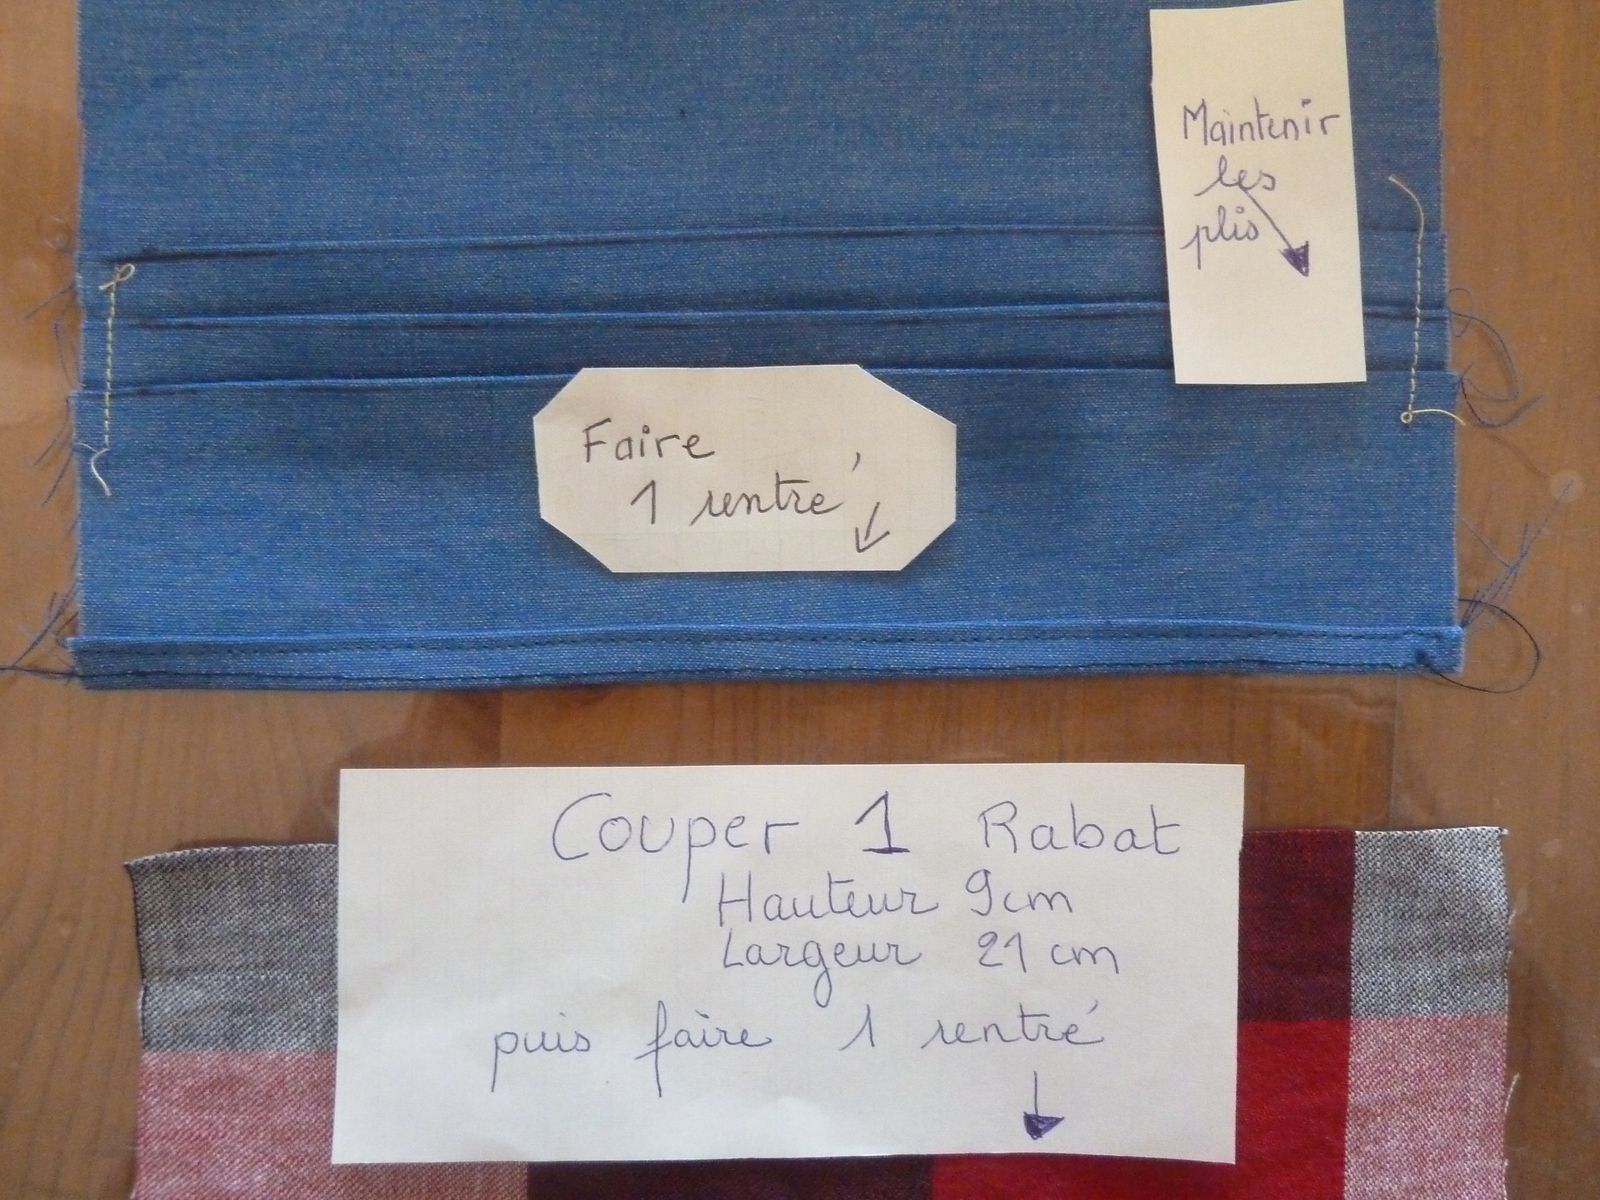 Maintenir
les
plis
Faire
1 rentré
Couper 1 Rabat
Hauteur 9cm
Largeur 21 cm
puis faire 1 rentré